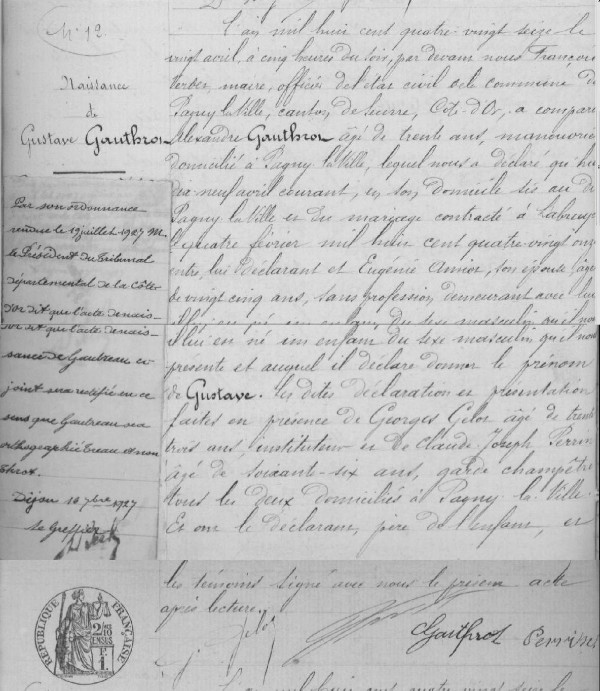 N° 12
Naissance
de
Gustave Gauthrot
Par son ordonnance
rendue le 19 juillet 1927 M.
le Président du Tribunal
départemental de la Côte
d'or dit que l'acte de nais-
d'or dit que l'acte de nais-
sance de Gautreau ci
joint sera rectifié en ce
sens que Gautreau sera
orthographié treau et non
throt.
Dijon 16 7bre 1927
Le Greffier
L'an mil huit cent quatre-vingt seize le
vingt avril, à cinq heures du soir, par devant nous François
maire, officier de l'état civil de la commune de
Pagny la Ville, canton de Seurre, Côte-d'Or, a comparu
Alexandre Gauthrot âgé de trente ans, manouvrier
domicilié à Pagny la Ville, lequel nous a déclaré qu'hier
dix-neuf avril courant, en son domicile sis au dit
Pagny la Ville et du mariage contracté à
le quatre février mil huit cent quatre-vingt onze
entre lui déclarant et Eugénie son épouse âgée
de vingt cinq ans, sans profession, demeurant avec lui
il lui est né un enfant du sexe masculin qu'il nous
il lui est né un enfant du sexe masculin qu'il nous
présente et auquel il déclare donner le prénom
de Gustave. Les dites déclaration et présentation
faites en présence de Georges âgé de trente
trois ans, instituteur et de Claude Joseph
âgé de soixante-six ans, garde champêtre
tous les deux domiciliés à Pagny la Ville.
Et ont le déclarant, père de l'enfant, et
les témoins signé avec nous le présent acte
après lecture.
Gauthrot
RÉPUBLIQUE FRANÇAISE
2/10
EN SUS
L'an mil huit cent quatre vingt seize le